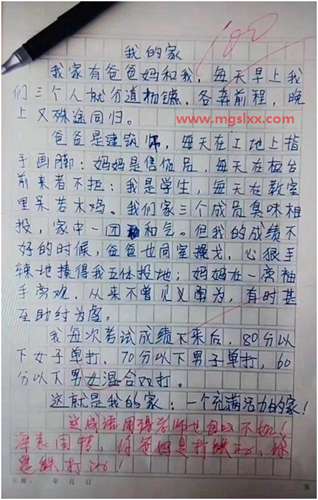 100
www.mgslxx.com
我的家
我家有爸爸妈和我，每天早上我
们三个人就分道扬镳，各奔前程，晚
上又殊途同归。
爸爸是建筑师，每天在工地上指
手画脚；妈妈是售货员，每天在柜台
前来者不拒；我是学生，每天在教室
里呆若木鸡。我们家三个成员臭味相
投，家中一团和气。但我的成绩不
好的时候，爸爸也同室操戈，心狠手
辣地揍得我五体投地；妈妈在一旁袖
手旁观，从来不曾见义勇为，有时甚
至助纣为虐。
我每次考试成绩下来后，80分以
下女子单打，70分以下男子单打，60
分以下男女混合双打。
这就是我的家：一个充满活力的家！